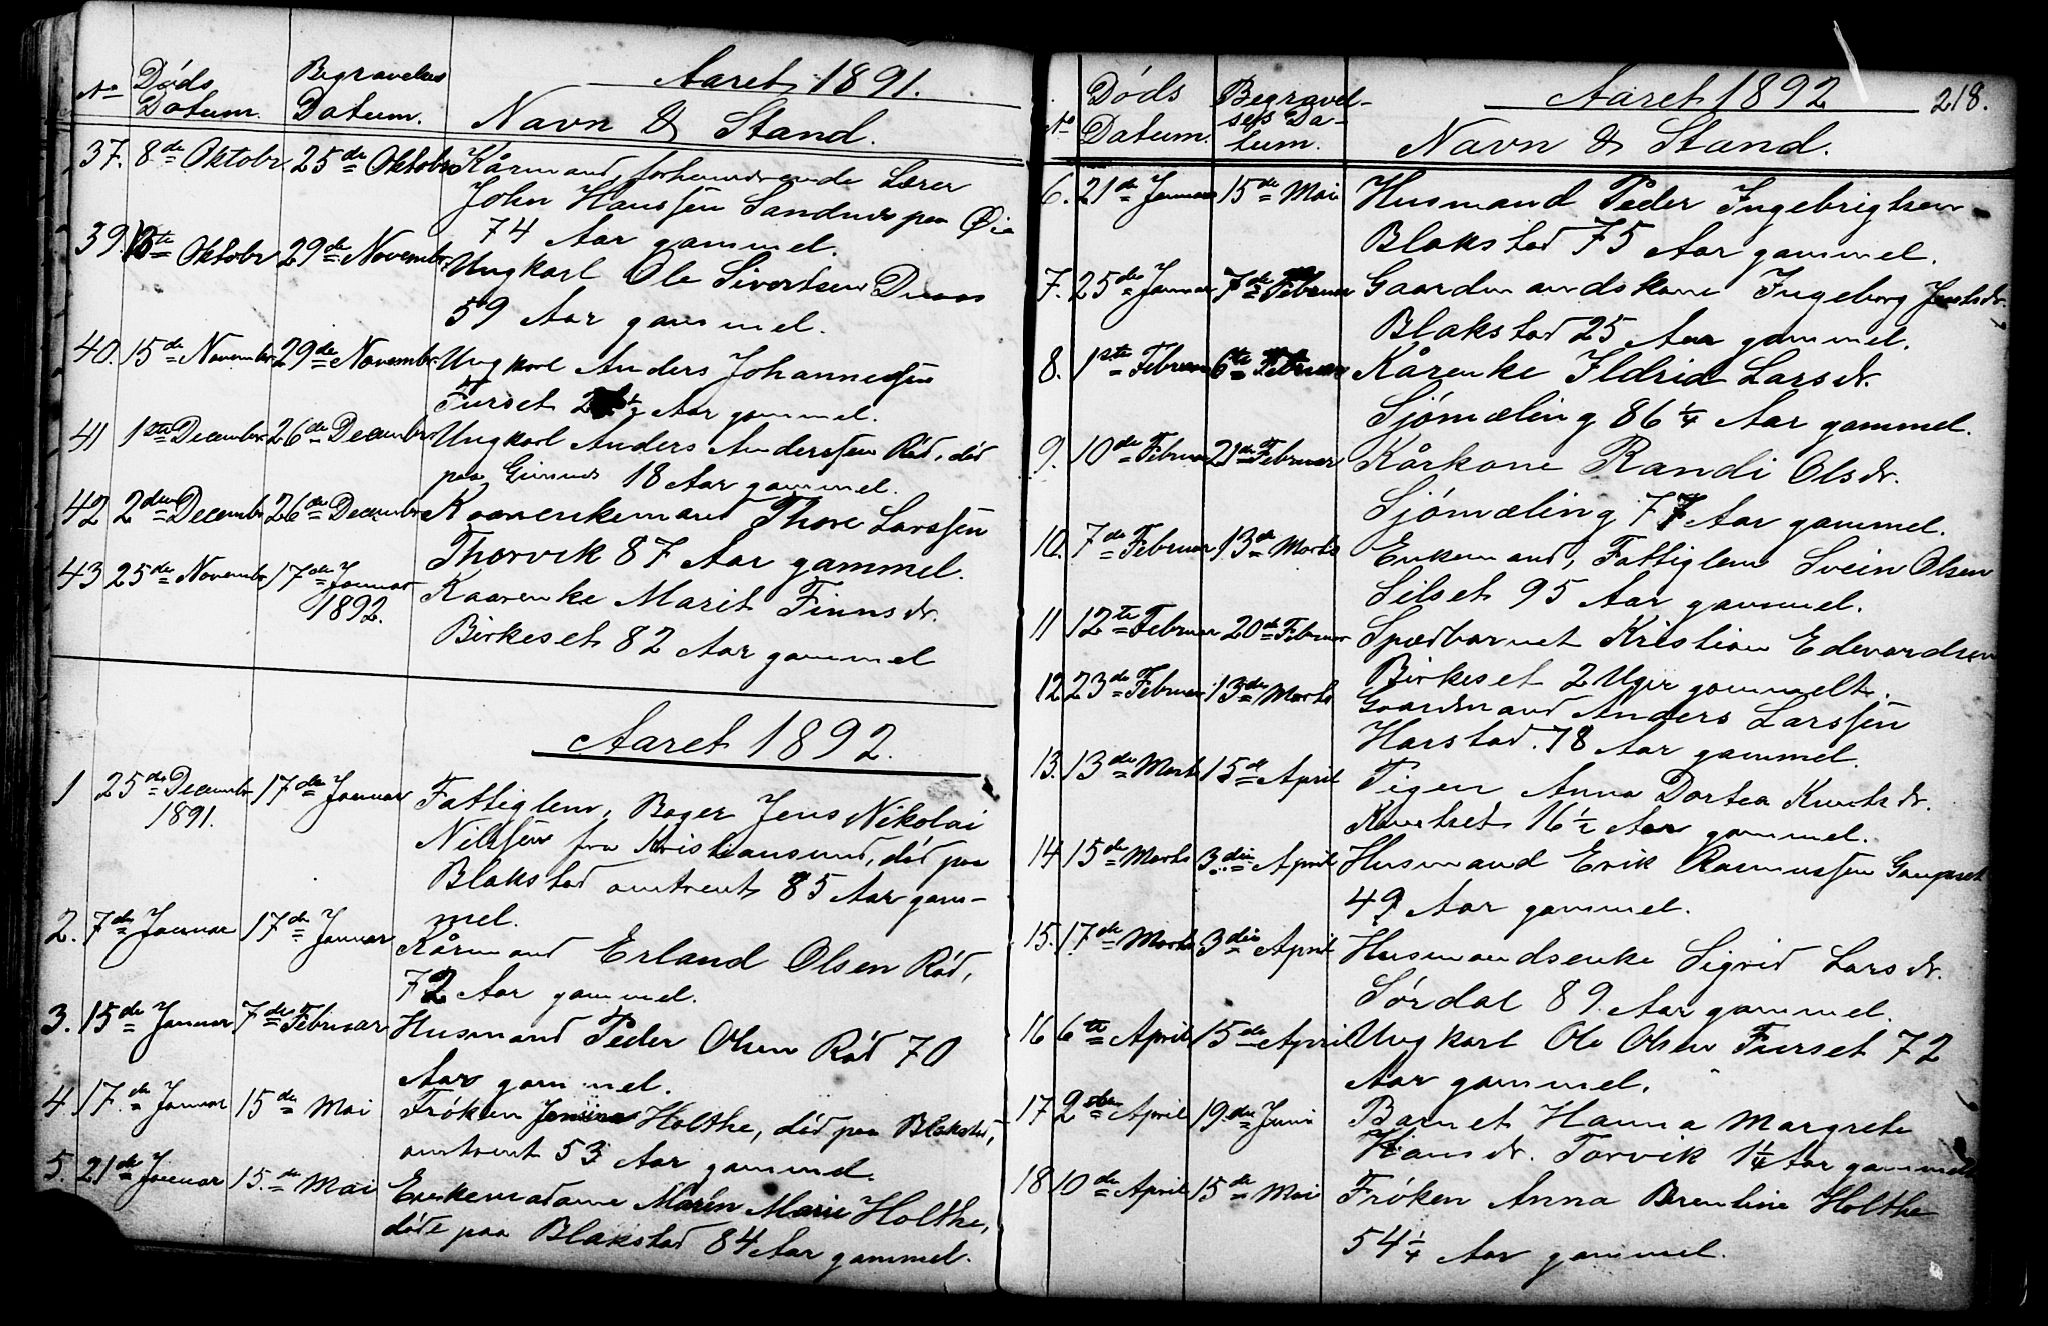 Aaret 1891.
No Døds Datum. Begravelses Datum. Navn & Stand.
37. 8de Oktobr. 25de Oktobr. Kårmand, forhenværende Lærer
John Hanssen Sandnes paa Øie
74 Aar gammel.
39. Oktobr. 29de Novembr. Ungkarl Ole Sivertsen
59 Aar gammel.
40. 15de Novembr. 29de Novembr. Ungkarl Anders Johannessen
Furset Aar gammel.
41 1ste Decembr. 26de Decembr. Ungkarl Anders Anderssen Rød, død
paa Gimnes 18 Aar gammel.
42 2den Decembr. 26de Decembr. Kaarenkemand Thore Larssen
Thorvik 87 Aar gammel.
43 25de Novembr. 17de Januar Kaarenke Marit Finnsdr.
1892. Birkeset 82 Aar gammel
Aaret 1892.
1 25de Decembr. 17de Januar Fattiglem, Bager Jens Nikolai
1891. Nilssen fra Kristiansund, død paa
Blakstad omtrent 85 Aar gam-
mel.
2. 7de Januar 17de Januar Kårmand Erland Olsen Rød,
72 Aar gammel.
3. 15de Januar 7de Februar Husmand Peder Olsen Rød 70
Aar gammel.
4. 17de Januar 15de Mai Frøken Holthe, død paa Blakstad,
omtrent 53 Aar gammel.
5. 21de Januar 15.de Mai Enkemadame Maren Marie Holthe,
døde paa Blakstad 84 Aar gammel.
Aaret 1892 218.
No Døds Datum. Begravel-
ses Da-
tum. Navn & Stand.
6. 21de Januar 15de Mai Husmand Peder Ingebrigtsen
Blakstad 75 Aar gammel.
7. 25de Januar 7de Februar Gaardmandskone Ingeborg
Blakstad 25 Aar gammel.
8. 1ste Februar 6te Februar Kårenke Ildrid Larsdr.
Sjømæling 86 1/4 Aar gammel.
9. 10de Februar 21de Februar Kårkone Randi Olsdr.
Sjømæling 77 Aar gammel.
10. 7de Februar 13de Marts Enkemand, Fattiglem Svein Olsen
Silset 95 Aar gammel.
11 12te Februar 20de Februar Spædbarnet Kristian Edvardsen
Birkeset 2 Uger gammelt.
12 23de Februar 13de Marts Gaardmand Anders Larssen
Harstad. 78 Aar gammel.
13. 13de Marts 15de April Pigen Anna Dortea Knutsdr.
16 1/2 Aar gammel.
14 15de Marts 3die April Husmand Erik Rasmussen Gaupset
49 Aar gammel.
15. 17de Marts 3die April Husmandsenke Sigrid Larsdr.
Sørdal 89 Aar gammel.
16 6te April 15de April Ungkarl Ole Olsen Furset 72
Aar gammel.
17 2den April 19de Juni Barnet Hanna Margrete
Hansdr. Torvik 1 1/4 Aar gammel
18 10de April 15de Mai Frøken Anna Holthe
54 1/4 Aar gammel.